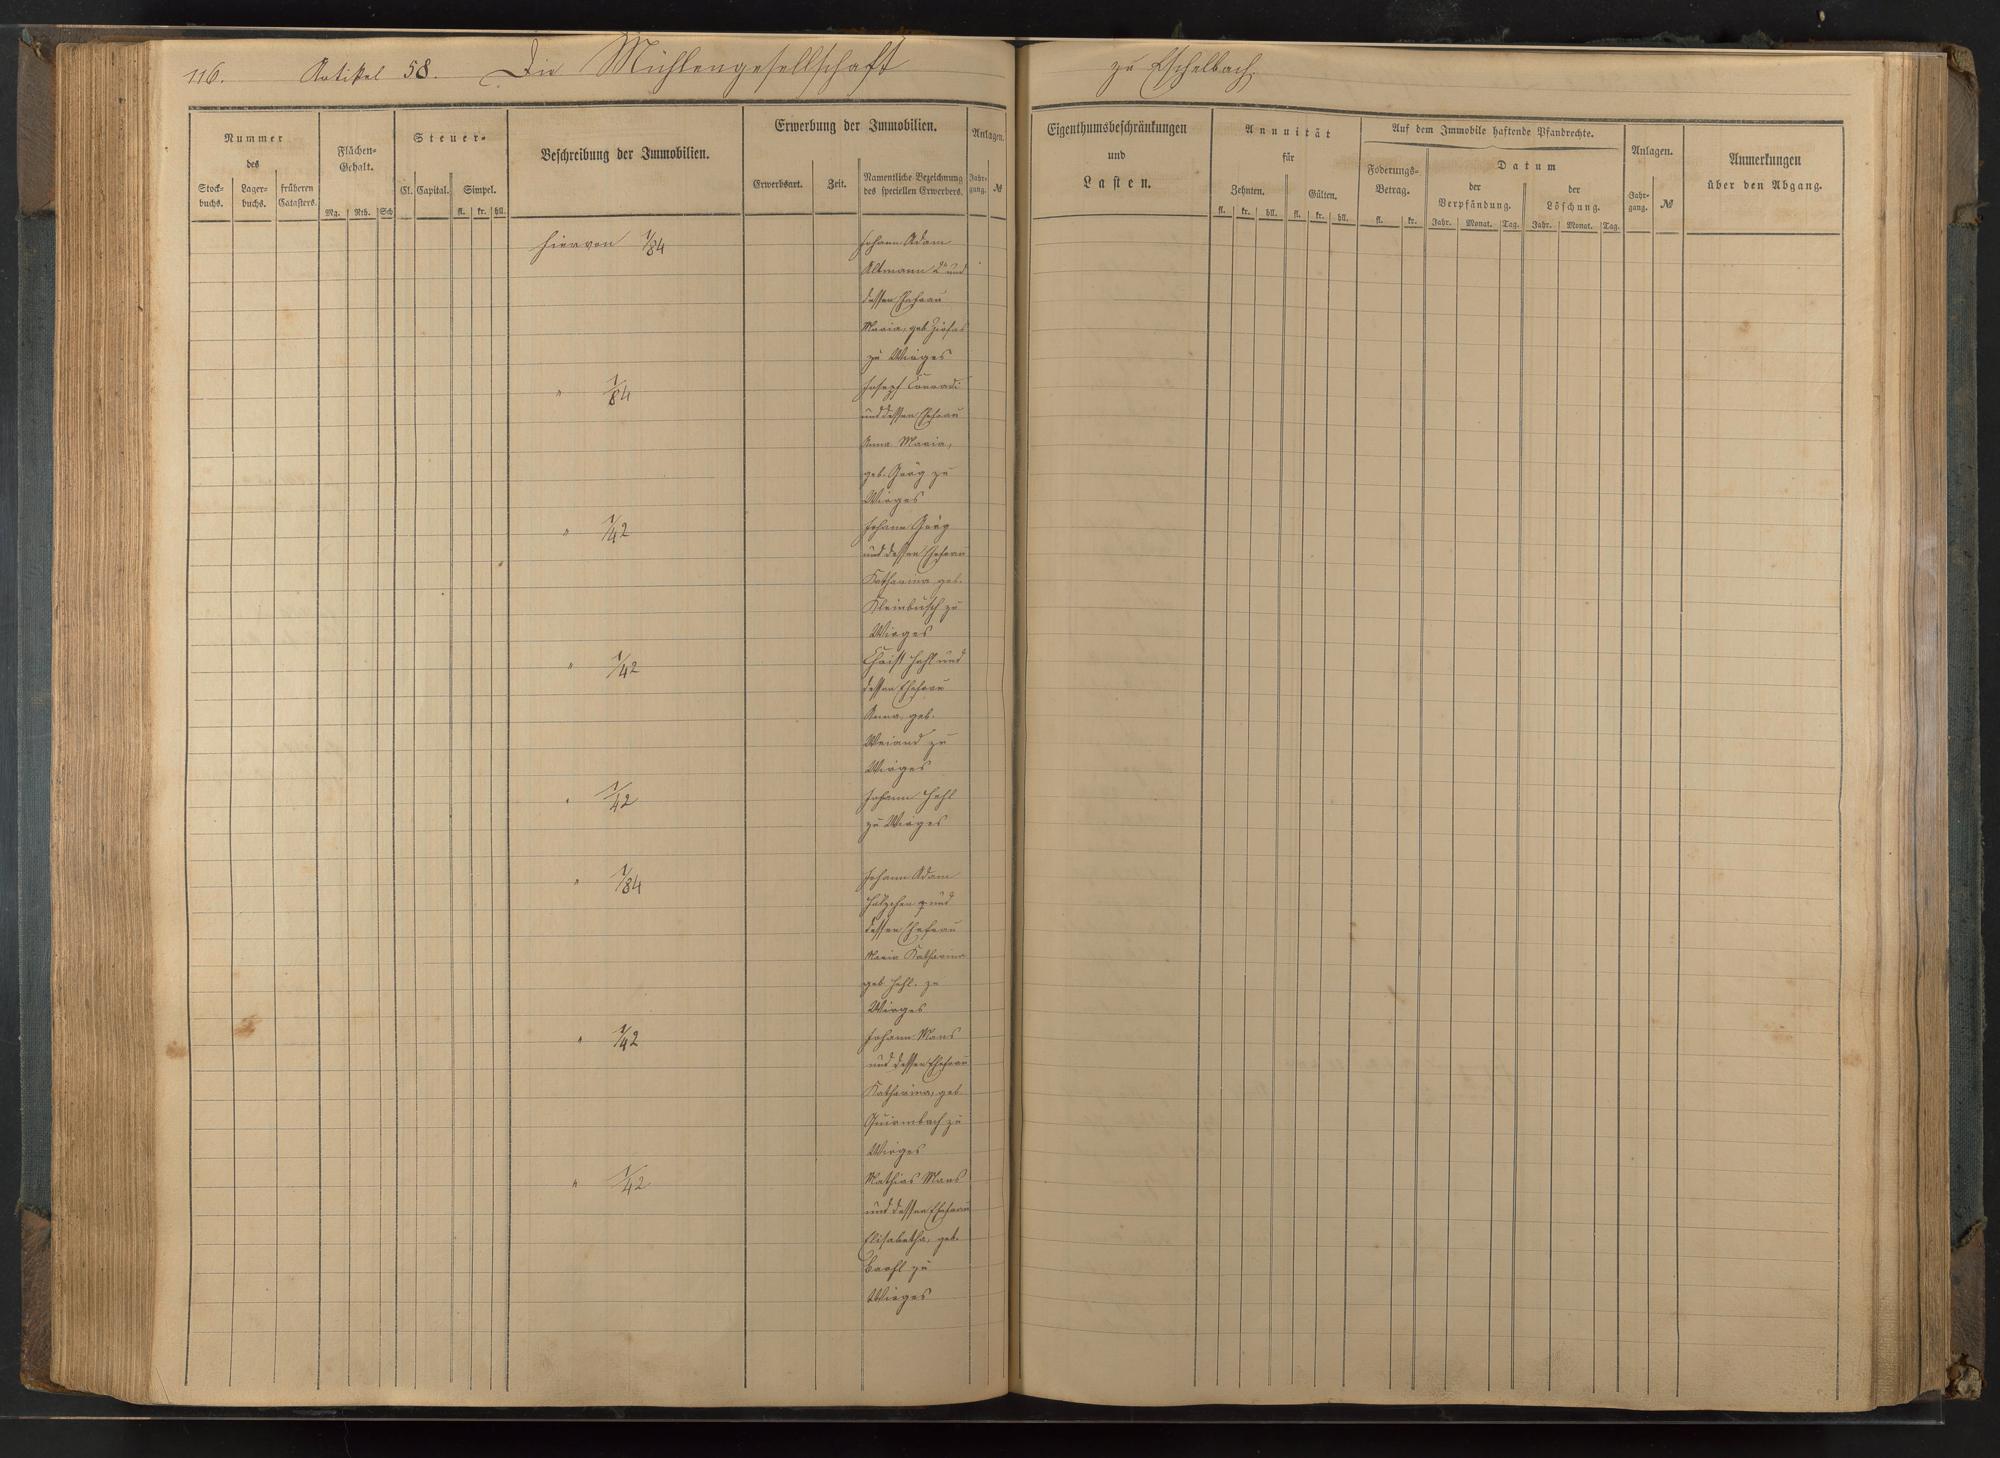 116. Artikel 58. Die Mühlengesellschaft zu Eschelbach.
Nummer
des
Stock-
buchs.
Lager-
buchs.
früheren
Catasters.
Flächen-
Gehalt.
Mg. Rth. Sch
Steuer-
Cl. Capital. Simpel.
fl. kr. hll.
Beschreibung der Immobilien.
Erwerbung der Immobilien.
Erwerbsart. Zeit.
Namentliche Bezeichnung
des speciellen Erwerbers.
Anlagen.
Jahr-
gang. №
Eigenthumsbeschränkungen
und
Lasten.
Annuität
für
Zehnten. Gülten.
fl. kr. hll. fl. kr. hll.
Auf dem Immobile haftende Pfandrechte.
Foderungs-
Betrag.
fl. kr.
Datum
der
Verpfändung.
Jahr. Monat. Tag.
der
Löschung.
Jahr. Monat. Tag.
Anlagen.
Jahr-
gang. №
Anmerkungen
über den Abgang.
hiervon 1/84 Johann Adam
Altmann 2r und
dessen Ehefrau
Maria, geb.
zu Wirges
" 1/84 Joseph Conradi
und dessen Ehefrau
Anna Maria,
geb. Görg zu
Wirges
" 1/42 Johann Görg
und dessen Ehefrau
Katharina geb.
Kleinbusch zu
Wirges
" 1/42 Christ Hehl und
dessen Ehefrau
Anna, geb.
Weiand zu
Wirges
" 1/42 Johann Hehl
zu Wirges
" 1/84 Johann Adam
und
dessen Ehefrau
Maria Katharina
geb. Hehl. zu
Wirges
" 1/42 Johann Mans
und dessen Ehefrau
Katharina, geb
Quirmbach zu
Wirges
" 1/42 Mathias Mans
und dessen Ehefrau
Elisabetha, geb.
zu
Wirges